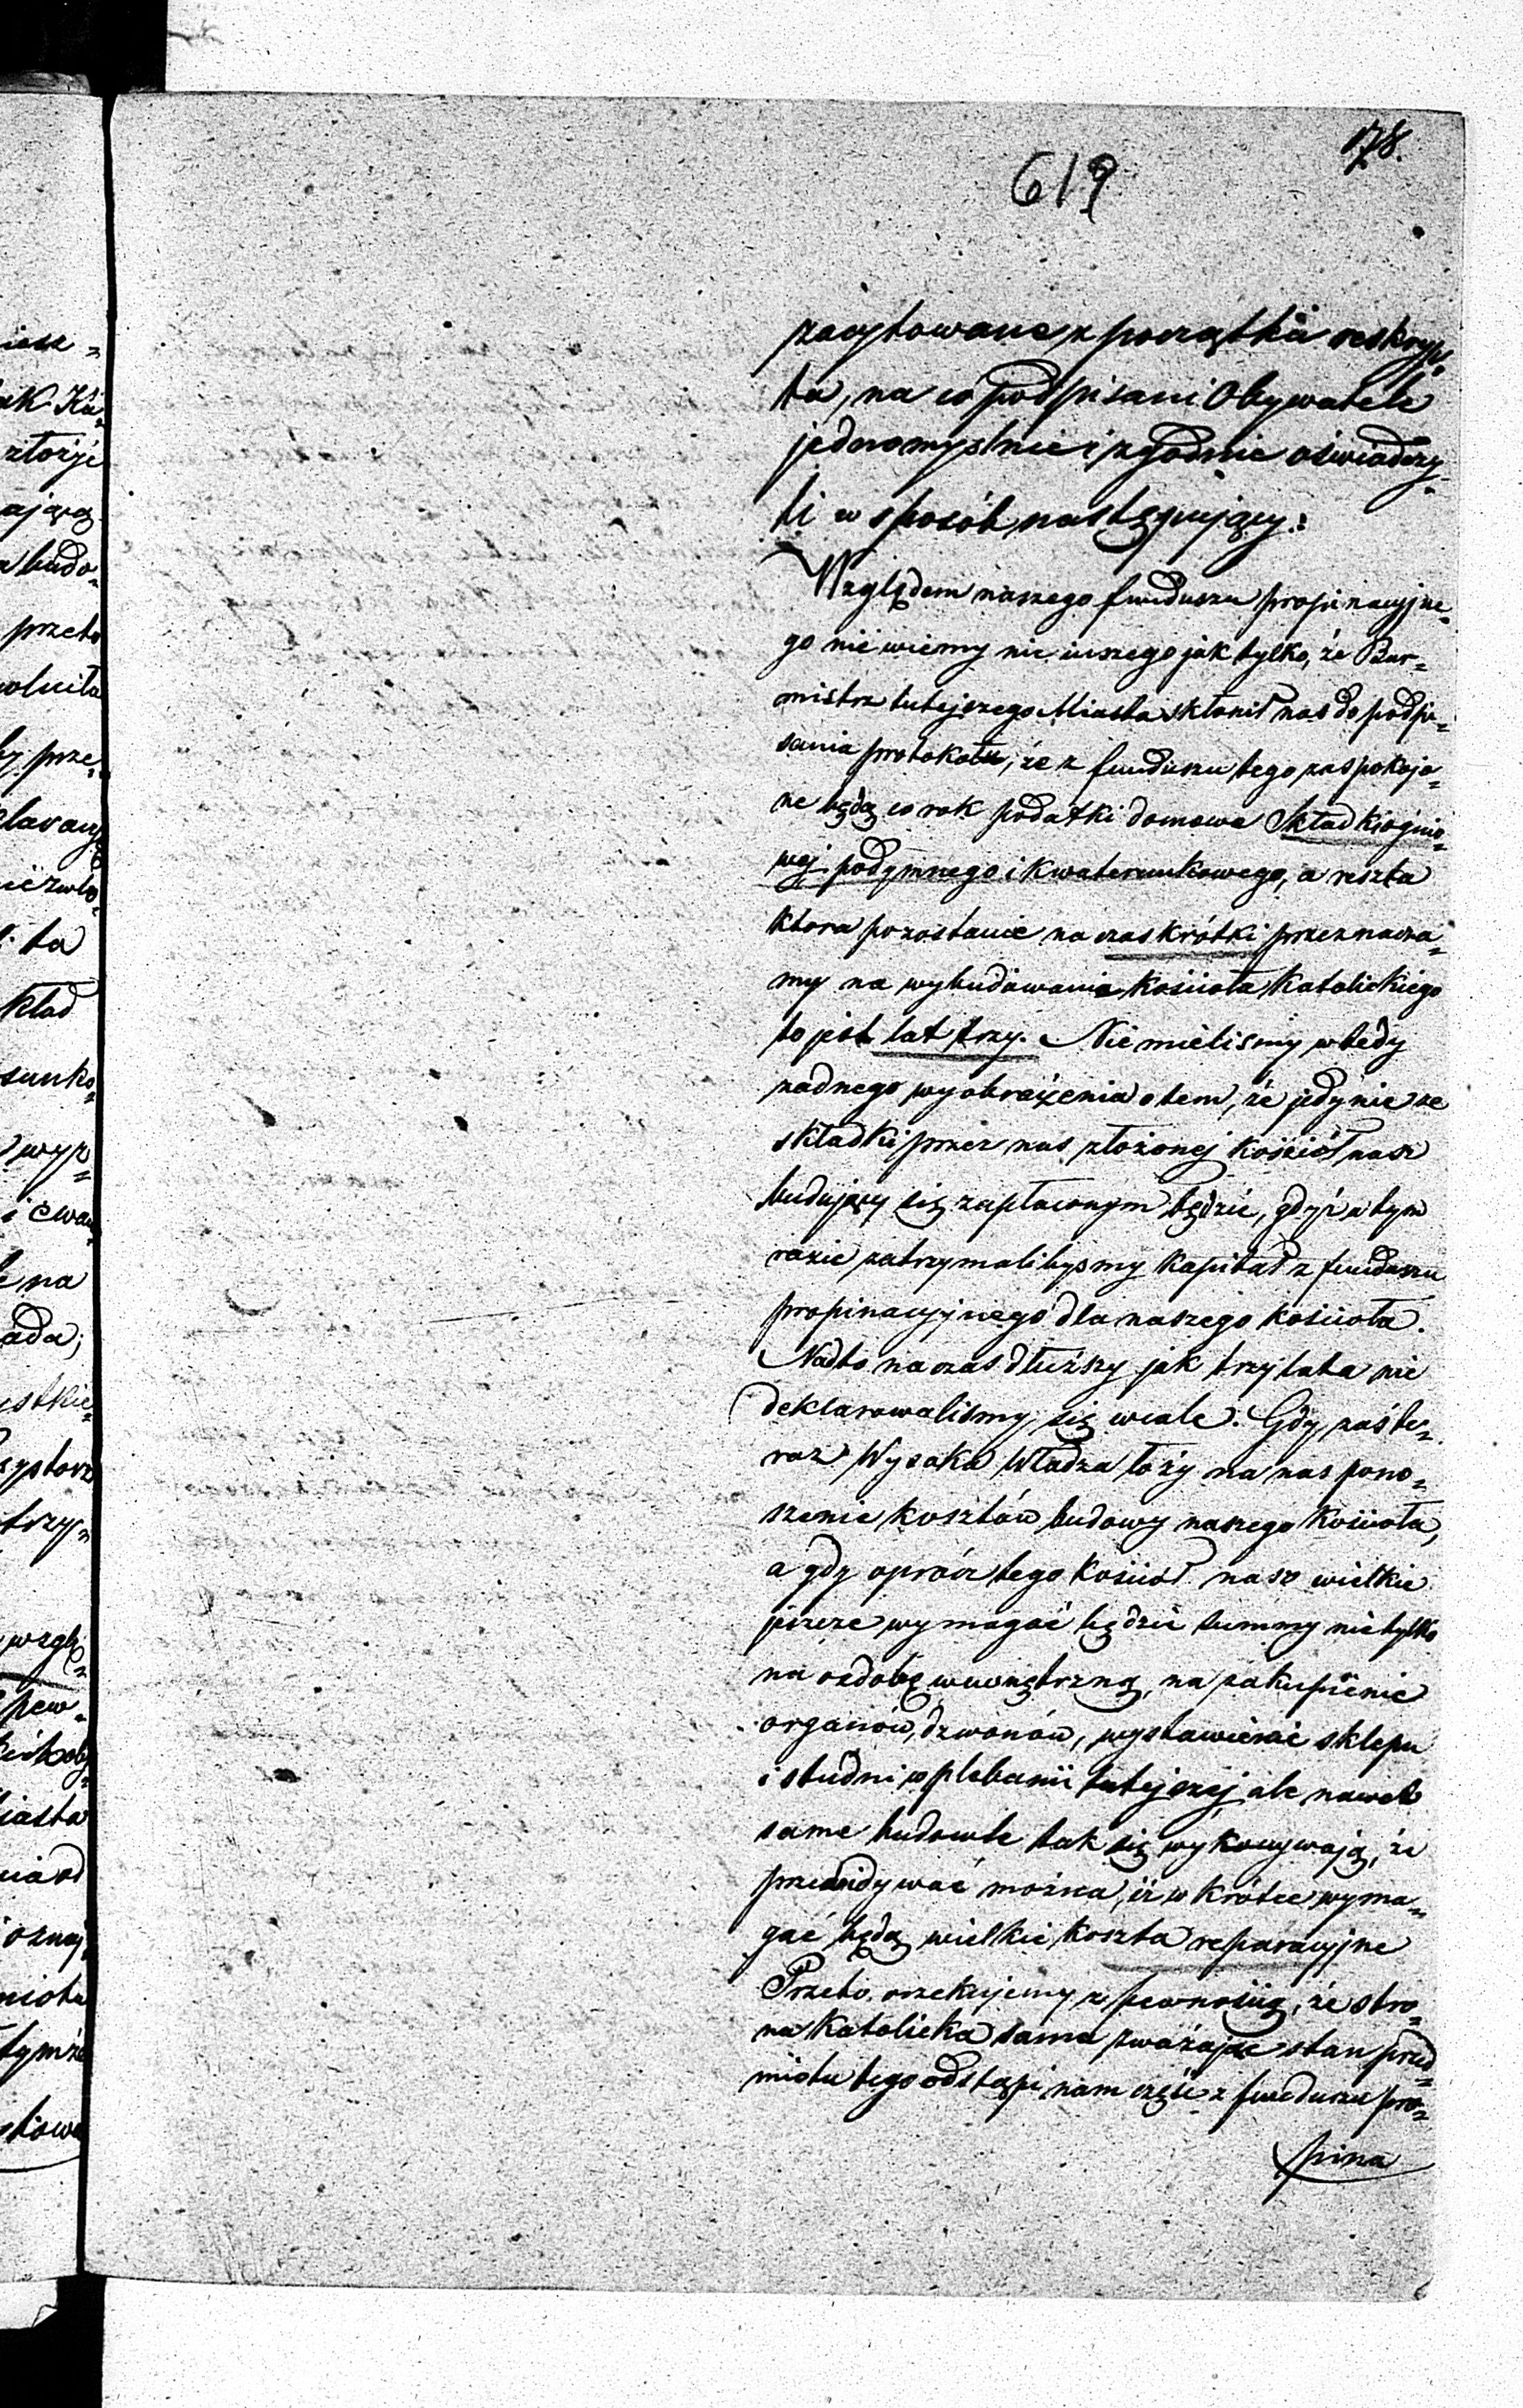 178.
619
zacytowane z początkú reskryp-
ta, na co podpisani Obywatele
jednomyslnie i zgodnie oświadczy-
li w sposób następujący:
Względem naszego funduszu propinacyjne-
go nie wiemy nic inszego jak tylko, że Bur-
mistrz tutejszego Miasta skłonił nas do podpi-
sania protokołu, że z funduszu tego zaspokojo-
ne będą co rok podatki domowe Składki ognio-
wej podymnego i kwaterunkowego, a reszta
ktora pozostanie na czas krótki przeznacza-
my na wybudowanie kościoła Katolickiego
to jest lat trzy. Nie mieliśmy wtedy
zadnego wyobrażenia o tem, że jedynie ze
składki przez nas złożonej kościół nasz
budujący się zapłaconym będzie, gdyż w tym
razie zatrzymalibysmy Kapitał z funduszu
propinacyjnego dla naszego kościoła.
Nadto na czas dłuższy jak trzy lata nie
deklarowaliśmy się wcale. Gdy zaś te-
raz Wysoka Władza łoży na nas pono-
szenie kosztów budowy naszego Kościoła,
a gdy oprócz tego Kościół nasz wielkie
jeszcze wymagać będzie summy nie tylko
na ozdobę wewnętrzną, na zakupienie
organów, dzwonów, wystawienie sklepu
i studni w plebanii tutejszej ale nawet
same budowle tak się wykonywają, że
przewidywać można, iż w krótce wyma-
gać będą wielkie koszta reparacyjne
Przeto oczekujemy z pewnością, że stro-
na Katolicka sama zważając stan przed-
miotu tego odstąpi nam część z funduszu pro-
pina